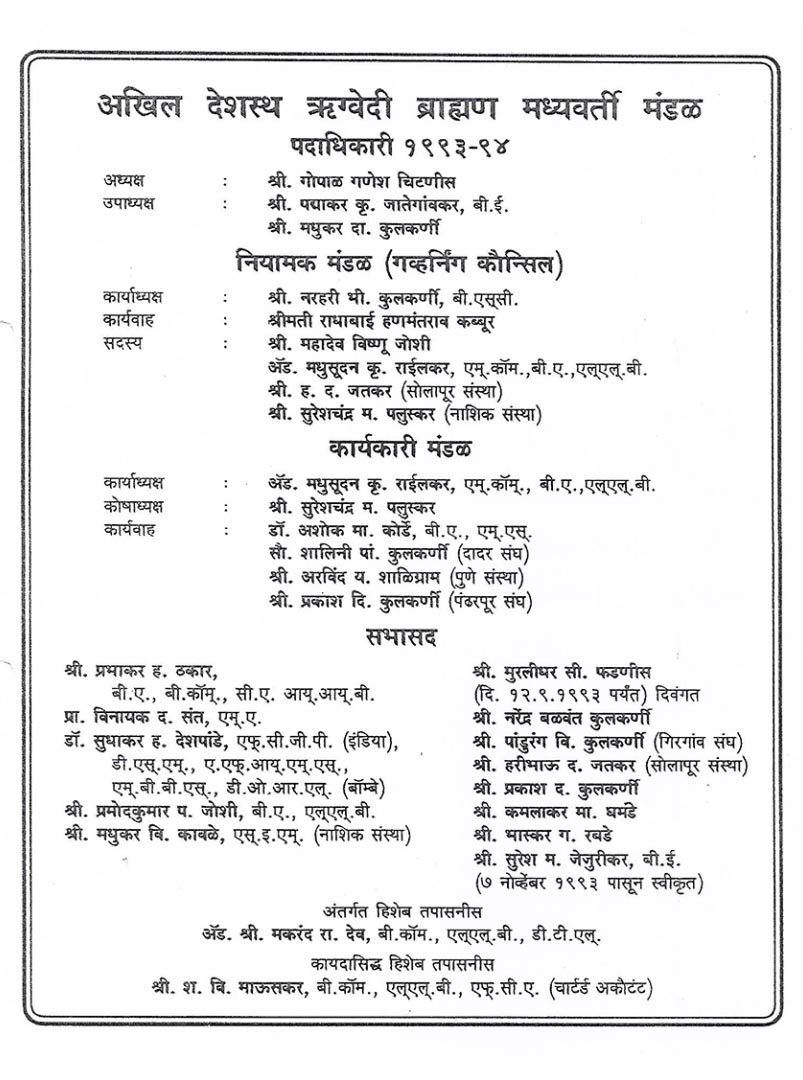 अखिल देशस्थ ऋग्वेदी ब्राह्मण मध्यवर्ती मंडळ
पदाधिकारी १९९३-९४
अध्यक्ष : श्री. गोपाळ गणेश चिटणीस
उपाध्यक्ष : श्री. पद्माकर कृ. जातेगांवकर, बी.ई.
श्री. मधुकर दा. कुलकर्णी
नियामक मंडळ (गव्हर्निंग कौन्सिल)
कार्याध्यक्ष : श्री. नरहरी भी. कुलकर्णी, बी.एस्‌सी.
कार्यवाह : श्रीमती राधाबाई हणमंतराव कब्बूर
सदस्य : श्री. महादेव विष्णू जोशी
अ‍ॅड. मधुसूदन कृ. राईलकर, एम्.कॉम.,बी.ए.,एल्‌एल्.बी.
श्री. ह. द. जतकर (सोलापूर संस्था)
श्री. सुरेशचंद्र म. पलुस्कर (नाशिक संस्था)
कार्यकारी मंडळ
कार्याध्यक्ष : अ‍ॅड. मधुसूदन कृ. राईलकर, एम्.कॉम्., बी.ए.,एल्‌एल्.बी.
कोषाध्यक्ष : श्री. सुरेशचंद्र म. पलुस्कर
कार्यवाह : डॉ. अशोक मा. कोर्डे, बी.ए., एम्.एस्.
सौ. शालिनी पां. कुलकर्णी (दादर संघ)
श्री. अरविंद य. शाळिग्राम (पुणे संस्था)
श्री. प्रकाश दि. कुलकर्णी (पंढरपूर संघ)
सभासद
श्री. प्रभाकर ह. ठकार,
बी.ए., बी.कॉम्., सी.ए. आय्.आय्.बी.
प्रा. विनायक द. संत, एम्.ए.
डॉ. सुधाकर ह. देशपांडे, एफ्.सी.जी.पी. (इंडिया),
डी.एस्.एम्., ए.एफ्.आय्.एम्.एस्.,
एम्.बी.बी.एस्., डी.ओ.आर.एल्. (बॉम्बे)
श्री. प्रमोदकुमार प. जोशी, बी.ए., एल्‌एल्.बी.
श्री. मधुकर वि. कावळे, एस्.इ.एम्. (नाशिक संस्था)
श्री. मुरलीधर सी. फडणीस
(दि. १२.९.१९९३ पर्यंत) दिवंगत
श्री. नरेंद्र बळवंत कुलकर्णी
श्री. पांडुरंग वि. कुलकर्णी (गिरगांव संघ)
श्री. हरीभाऊ द. जतकर (सोलापूर संस्था)
श्री. प्रकाश द. कुलकर्णी
श्री. कमलाकर मा. घमंडे
श्री. भास्कर ग. रबडे
श्री. सुरेश म. जेजुरीकर, बी.ई.
(७ नोव्हेंबर १९९३ पासून स्वीकृत)
अंतर्गत हिशेब तपासनीस
अ‍ॅड. श्री. मकरंद रा. देव, बी.कॉम., एल्‌एल्.बी., डी.टी.एल्.
कायदासिद्ध हिशेब तपासनीस
श्री. श. वि. माऊसकर, बी.कॉम., एल्‌एल्.बी., एफ्.सी.ए. (चार्टर्ड अकौटंट)